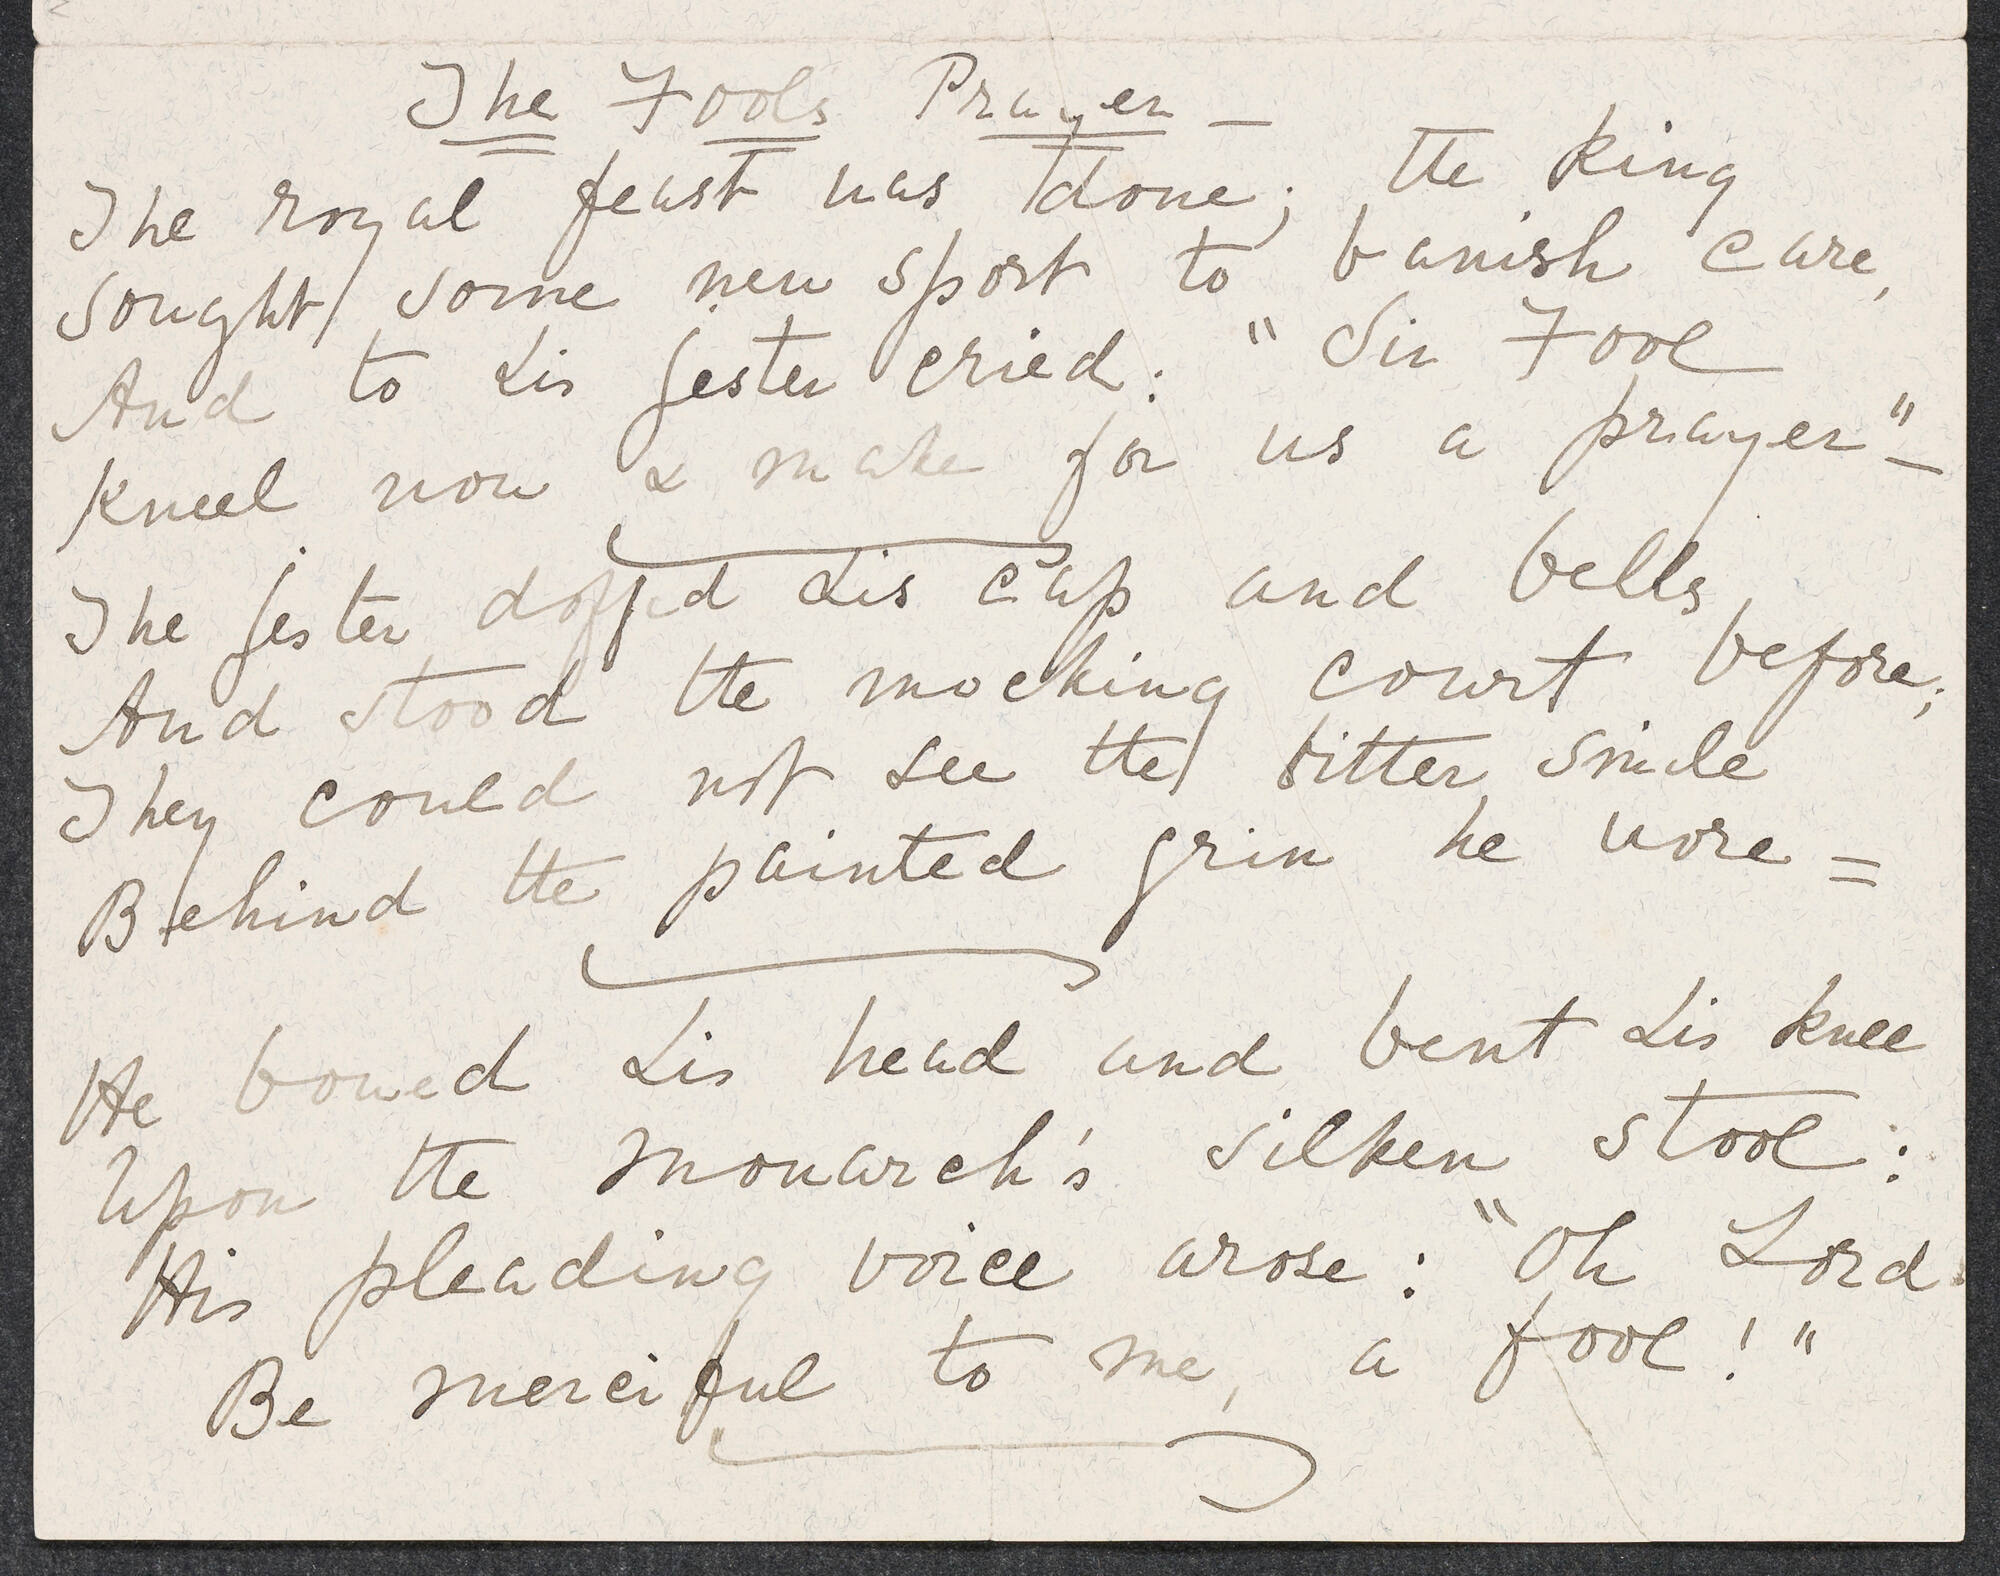 The Fools Prayer —
The royal feast was done; the king
Sought some new sport to banish care,
And to his jester cried: "Sir Fool
Kneel now & make for us a prayer" —
The jester doffed his cap and bells,
And stood the mocking court before;
They could not see the bitter smile
Behind the painted grin he wore =
He bowed his head and bent his knee
Upon the monarch's silken stool:
His pleading voice arose: "Oh Lord
Be merciful to me, a fool!"